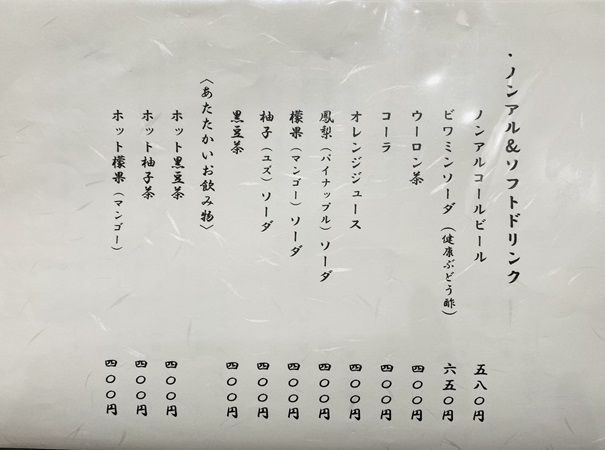 ・ノンアル&ソフトドリンク
ノンアルコールビール 五八〇円
ビワミンソーダ（健康ぶどう酢） 六五〇円
ウーロン茶 四〇〇円
コーラ 四〇〇円
オレンジジュース 四〇〇円
鳳梨（パイナップル）ソーダ 四〇〇円
檬果（マンゴー）ソーダ 四〇〇円
柚子（ユズ）ソーダ 四〇〇円
黒豆茶 四〇〇円
〈あたたかいお飲み物〉
ホット黒豆茶 四〇〇円
ホット柚子茶 四〇〇円
ホット檬果（マンゴー） 四〇〇円